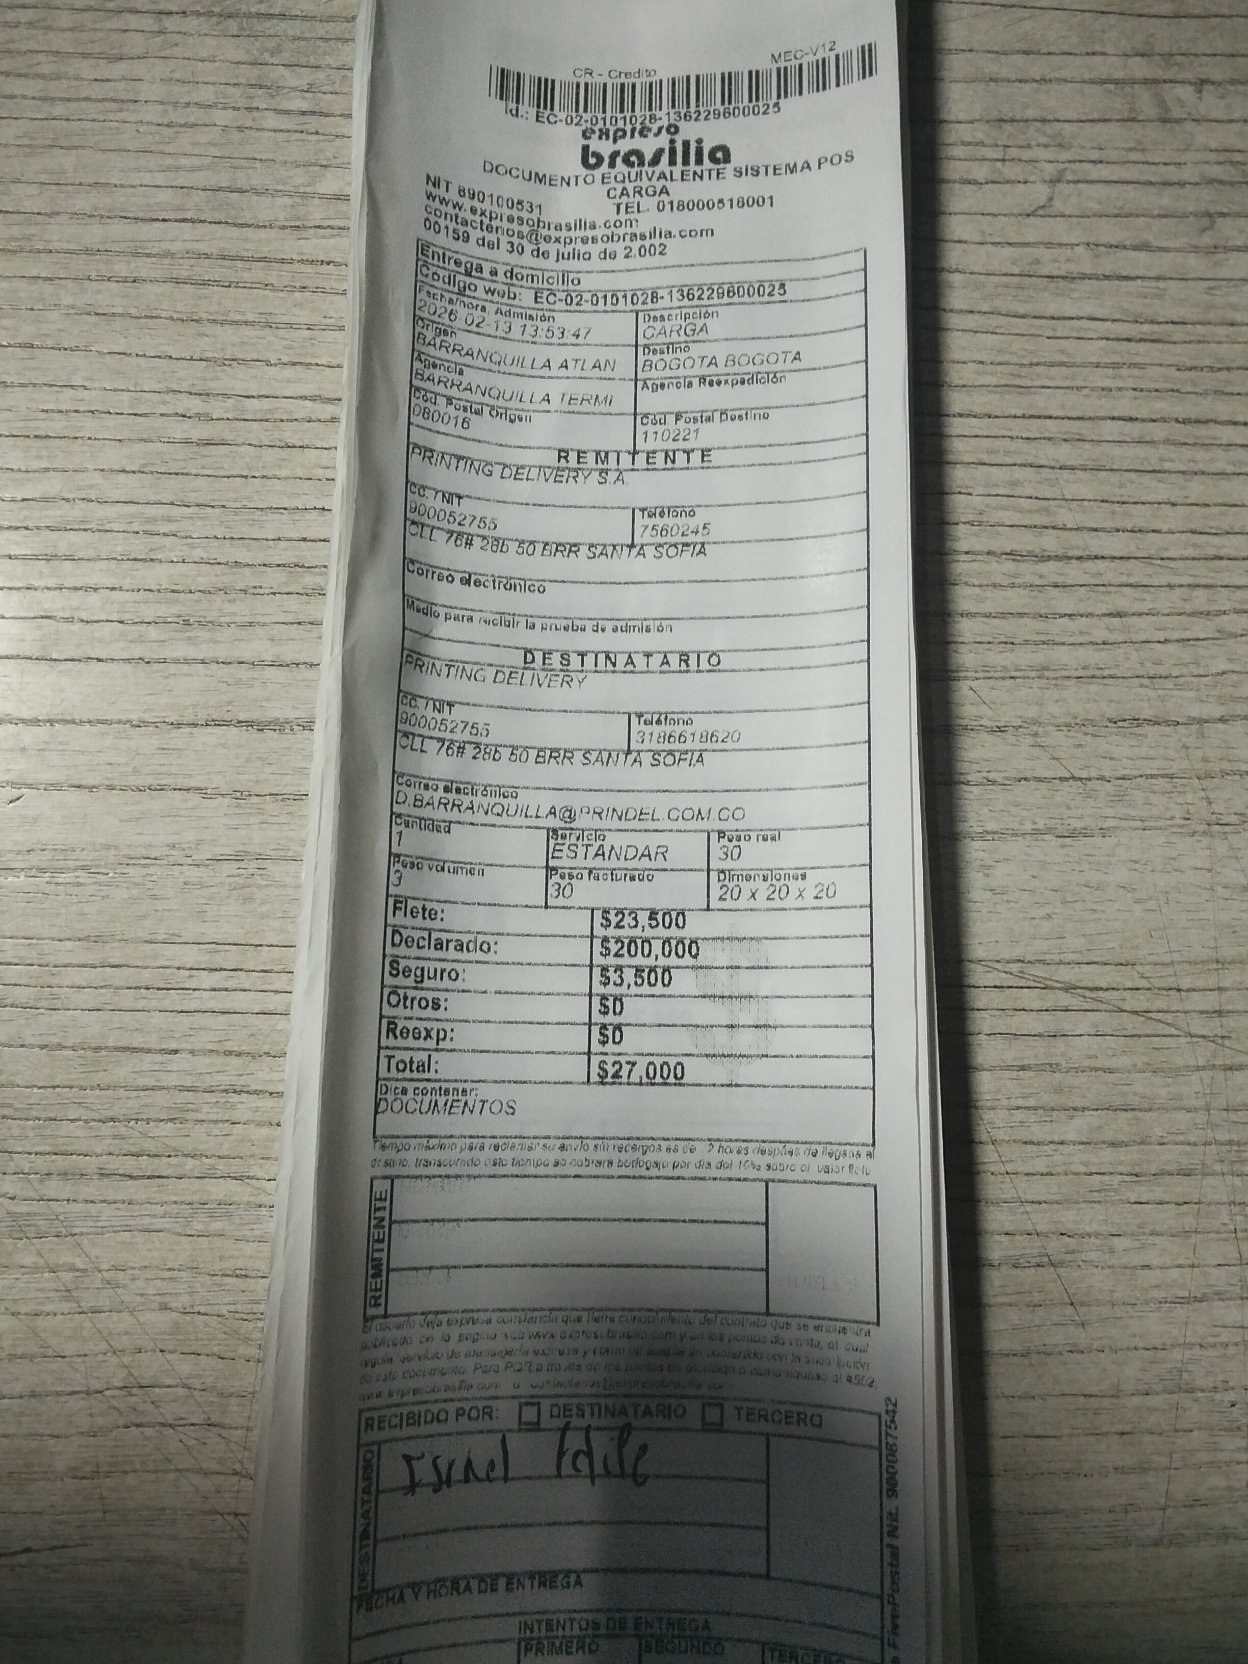 MEC-V12
CR - Credito
Id.: EC-02-0101028-136229600025
expreso
brasilia
DOCUMENTO EQUIVALENTE SISTEMA POS
CARGA
NIT 890100531 TEL. 018000518001
www.expresobrasilia.com
contactenos@expresobrasilia.com
00159 del 30 de julio de 2.002
Entrega a domicilio
Código web: EC-02-0101028-136229600025
Fecha/hora. Admisión Descripción
2026-02-13 13:53:47 CARGA
Origen Destino
BARRANQUILLA ATLAN BOGOTA BOGOTA
Agencia Agencia Reexpedición
BARRANQUILLA TERMI
Cód. Postal Origen Cód. Postal Destino
080016 110221
REMITENTE
PRINTING DELIVERY S.A.
CC. / NIT Teléfono
900052755 7560245
CLL 76# 28b 50 BRR SANTA SOFIA
Correo electrónico
Medio para recibir la prueba de admisión
DESTINATARIO
PRINTING DELIVERY
CC. / NIT Teléfono
900052755 3186618620
CLL 76# 28b 50 BRR SANTA SOFIA
Correo electrónico
D.BARRANQUILLA@PRINDEL.COM.CO
Cantidad Servicio Peso real
1 ESTANDAR 30
Peso volumen Peso facturado Dimensiones
3 30 20 x 20 x 20
Flete: $23,500
Declarado: $200,000
Seguro: $3,500
Otros: $0
Reexp: $0
Total: $27,000
Dice contener:
DOCUMENTOS
Tiempo máximo para reclamar su envío sin recargos es de 72 horas después de llegada al
destino, transcurrido este tiempo se cobrará bodegaje por día del 10% sobre el valor flete
REMITENTE
El usuario deja expresa constancia que tiene conocimiento del contrato que se encuentra
publicado en la página web www.expresobrasilia.com y en los puntos de venta, el cual
regula servicio de mensajería expresa y
de este documento. Para PQR a través de los puntos de atención o comuníquese al #502,
RECIBIDO POR: DESTINATARIO TERCERO
DESTINATARIO
Israel
FECHA Y HORA DE ENTREGA
INTENTOS DE ENTREGA
PRIMERO SEGUNDO TERCERO
FivePostal Nit. 900087542